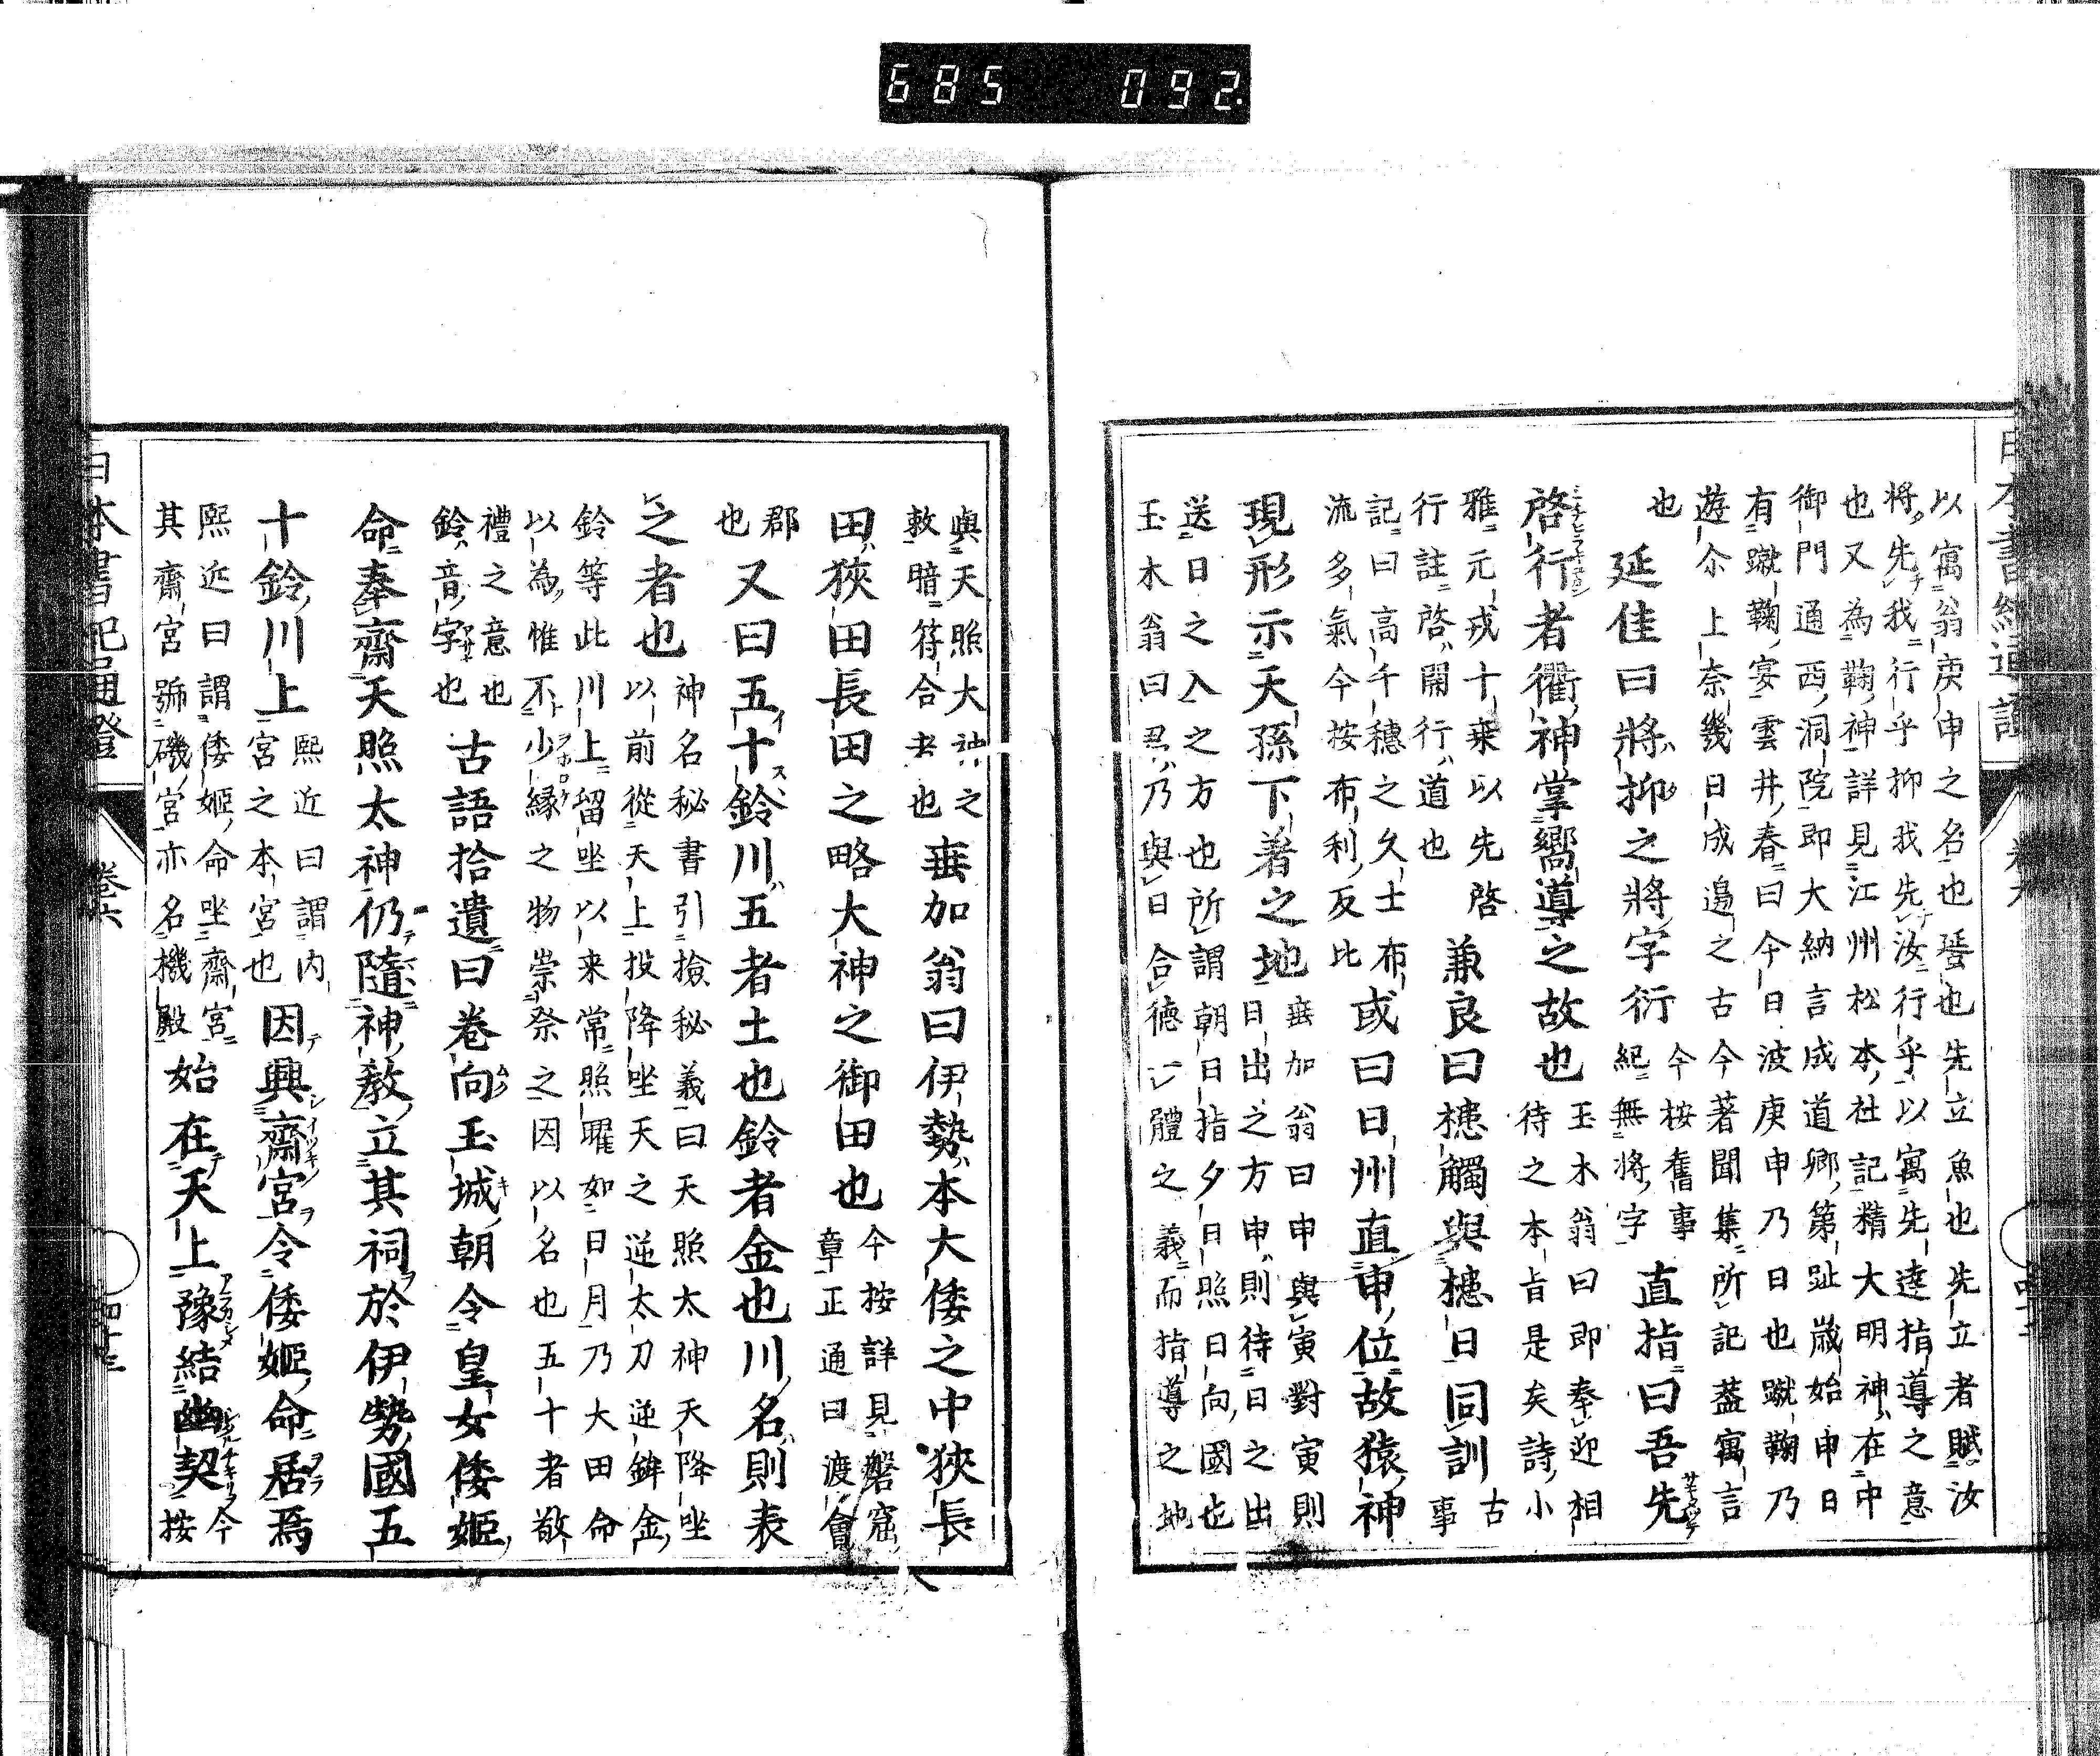 685 092
以寓翁庚申之名也蜑也先立魚也先立者賦汝
将先我行乎抑我先汝行乎以寓先達指導之意
也又為鞠神詳見江州松本社記精大明神在中
御門通西洞院即大納言成道卿第趾歳始申日
有蹴鞠宴雲井春曰今日波庚申乃日也蹴鞠乃
遊尒上奈幾日成邉之古今著聞集所記蓋寓言
也
延佳曰將抑之將字衍
今按舊事
紀無將字
直指曰吾先
啓行者衢神掌嚮導之故也
玉木翁曰即奉迎相
待之本旨是矣詩小
雅元戎十乗以先啓
行註啓開行道也
兼良曰槵觸與槵日同訓
古
事
記曰高千穗之久士布
流多氣今按布利反比
或曰日州直申位故猿神
現形示天孫下著之地
垂加翁曰申與寅對寅則
日出之方申則待日之出
送日之入之方也所謂朝日指夕日照日向國也
玉木翁曰忍乃與日合德一體之義而指導之地
日本書紀通證
卷六
與天照大神之
敕暗符合者也
垂加翁曰伊勢本大倭之中狹長
田狹田長田之略大神之御田也
今按詳見磐窟
章正通曰渡會
郡
也
又曰五十鈴川五者土也鈴者金也川名則表
之者也
神名秘書引撿秘義曰天照太神天降坐
以前從天上投降坐天之逆太刀逆鉾金
鈴等此川上留坐以来常照耀如日月乃大田命
以為惟不少縁之物崇祭之因以名也五十者敬
禮之意也
鈴音字也
古語拾遺曰卷向玉城朝令皇女倭姬
命奉齋天照太神仍隨神教立其祠於伊勢國五
十鈴川上
熙近曰謂内
宮之本宮也
因興齋宮令倭姬命居焉
熙近曰謂倭姬命坐齋宮
其齋宮號磯宮亦名機殿
始在天上豫結幽契
今
按